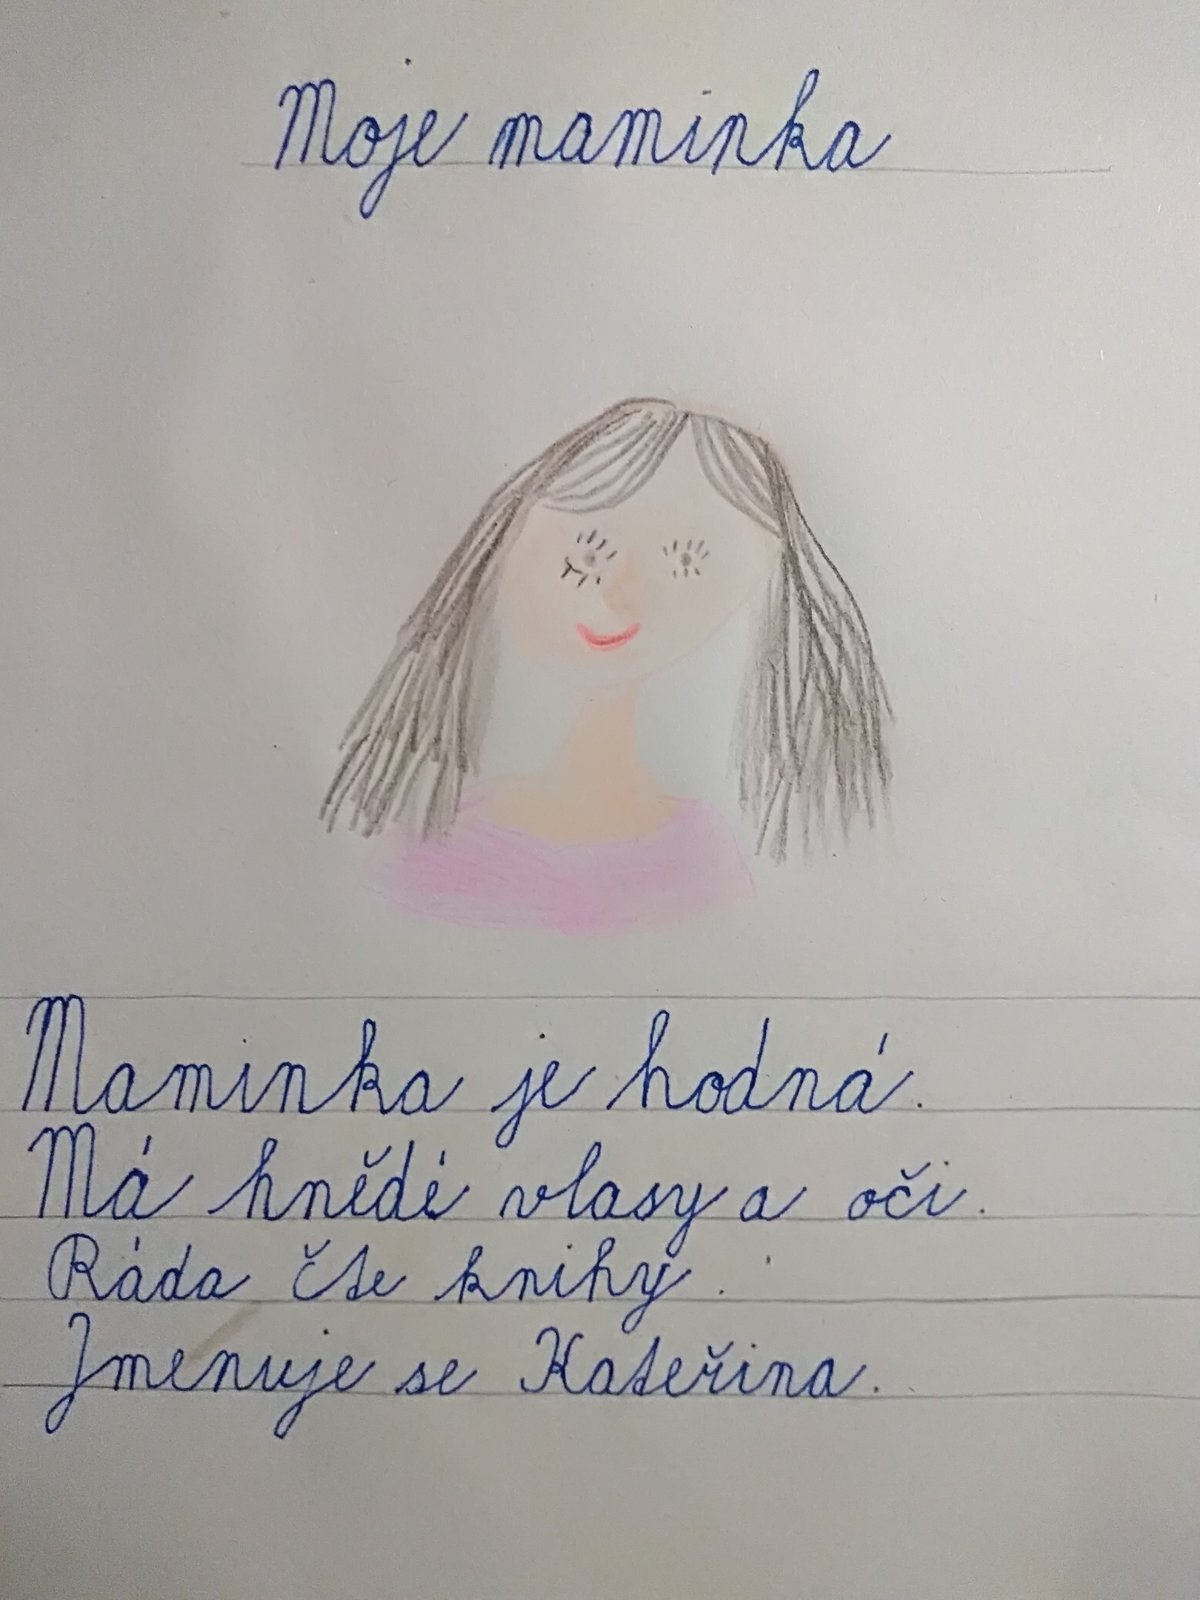 Moje maminka
Maminka je hodná.
Má hnědé vlasy a oči.
Ráda čte knihy.
Jmenuje se Kateřina.